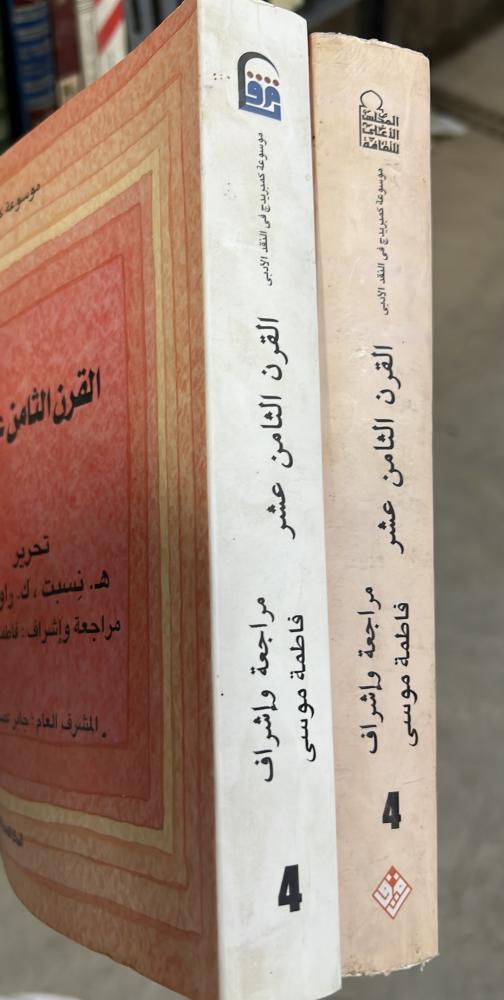 موسوعة
القرن الثامن
تحرير
هـ. نسبت ، ك. راو
مراجعة وإشراف : فاطمة
المشرف العام : جابر
موسوعة كمبريدج فى النقد الأدبى
القرن الثامن عشر
مراجعة وإشراف
فاطمة موسى
4
المجلس
الأعلى
للثقافة
موسوعة كمبريدج فى النقد الأدبى
القرن الثامن عشر
مراجعة وإشراف
فاطمة موسى
4